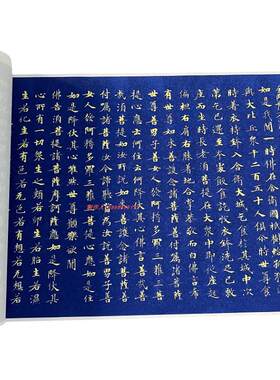 與大比丘衆千二百五十人俱爾時世尊食
時著衣持鉢入舍衛大城乞食於其城中次
第乞已還至本處飯食訖收衣鉢洗足已敷
座而坐時長老須菩提在大衆中即從座起
偏袒右肩右膝著地合掌恭敬而白佛言希
有世尊如來善護念諸菩薩善付囑諸菩薩
世尊善男子善女人發阿耨多羅三藐三菩
提心應云何住云何降伏其心佛言善哉善
哉須菩提如汝所說如來善護念諸菩薩善
付囑諸菩薩汝今諦聽當為汝說善男子善
女人發阿耨多羅三藐三菩提心應如是住
如是降伏其心唯然世尊願樂欲聞
佛告須菩提諸菩薩摩訶薩應如是降伏其
心所有一切衆生之類若卵生若胎生若濕
生若化生若有色若無色若有想若無想若